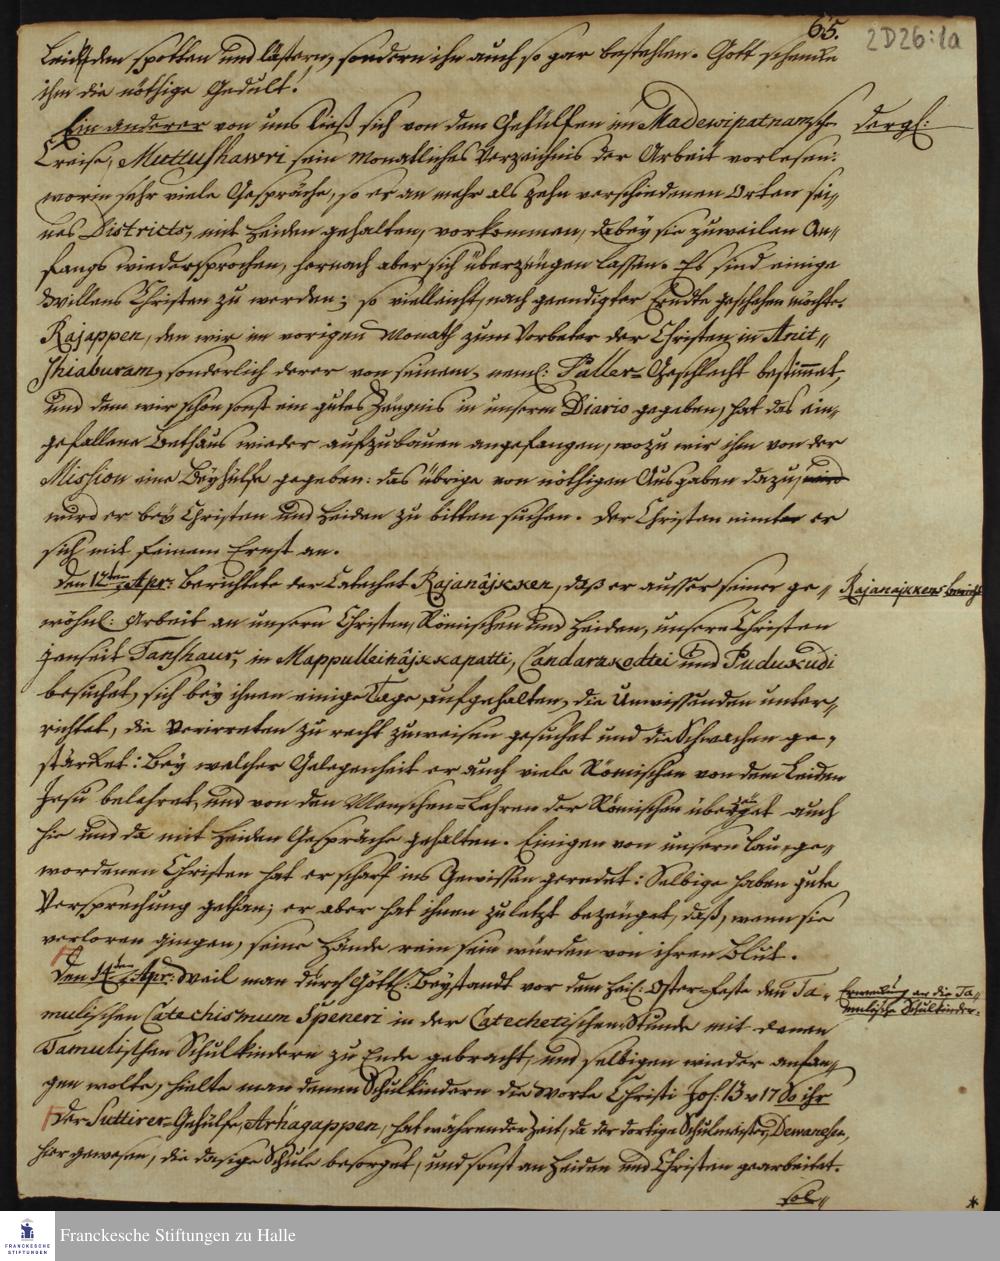 65.
2D26:1a
Leid den spotten und lästern, sondern ihn auch so gar bestehlen. Gott schencke
ihm die nöthige Gedult!
Ein anderer von uns ließ sich von dem Gehülfen im Madewipatnamsch.
dergl:
Creise, Muttushawri sein monatliches Verzeichnis der Arbeit vorlesen:
worin sehr viele Gespräche, so er an mehr als zehn verschiedenen Orten sei„
nes Districts, mit Heiden gehalten, vorkommen, dabey sie zuweilen An„
fangs wiedersprochen, hernach aber sich überzeugen lassen. Es sind einige
Willens Christen zu werden; so vielleicht, nach geendigter Erndte geschehen möchte.
Rajappen, den wir im vorigen Monath zum Vorbeter der Christen, in Anit„
shiaburam, sonderlich derer von seinem, neml: Paller-Geschlecht bestimmet,
und dem wir schon sonst ein gutes Zeugnis in unserm Diario gegeben, hat das ein„
gefallene Bethaus wieder aufzubauen angefangen, wozu wir ihm von der
Mission eine Beyhülfe gegeben: das übrige von nöthigen Ausgaben dazu, wird
wird er bey Christen und Heiden zu bitten suchen. Der Christen nimt er
sich mit feinem Ernst an.
Den 12ten Apr: berichtete der Catechet Rajanâjkken, daß er ausser seiner ge„
Rajanajkkens bericht
wöhnl: Arbeit an unsern Christen, Römischen und Heiden, unsere Christen
jenseit Tanshaur, in Mappulleinâjkkapatti, Candarakottei und Pudukudi
besuchet, sich bey ihnen einige Tage aufgehalten, die Unwissenden unter„
richtet, die Verirreten zu recht zuweisen gesuchet und die Schwachen ge„
stärcket: Bey welcher Gelegenheit er auch viele Römischen von dem Leiden
Jesu belehret, und von den Menschen-Lehren der Römischen überzeuget auch
hie und da mit Heiden Gespräche gehalten. Einigen von unsern lau ge„
wordenen Christen hat er scharf ins Gewissen geredet: Selbige haben gute
Versprechung gethan; er aber hat ihnen zuletzt bezeuget, daß, wenn sie
verloren gingen, seine Hände rein sein würden von ihren Blut.
Den 14ten Apr: Weil man durch Göttl: Beystandt vor dem heil: Oster-Feste den Ta„
Ermahnung an die Ta„
mulische Schulkinder.
mulischen Catechismum Speneri in der Catechetischen Stunde mit denen
Tamulischen Schulkindern zu Ende gebracht, und selbigen wieder anfan„
gen wolte, hielte man denen Schulkindern die Worte Christi Joh: 13 v 17 So ihr
Der Suttirer-Gehülfe, Arhagappen, hat während der Zeit, da der dortige Schulmeister, Dewanesen,
hier gewesen, die dasige Schule besorget, und sonst an Heiden und Christen gearbeitet.
sol„
*
FRANCKESCHE
STIFTUNGEN
Franckesche Stiftungen zu Halle